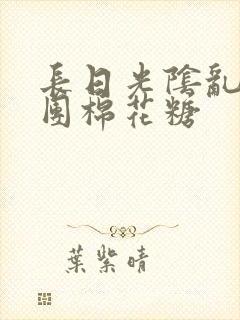 長日光陰亂
團棉花糖
葉紫晴